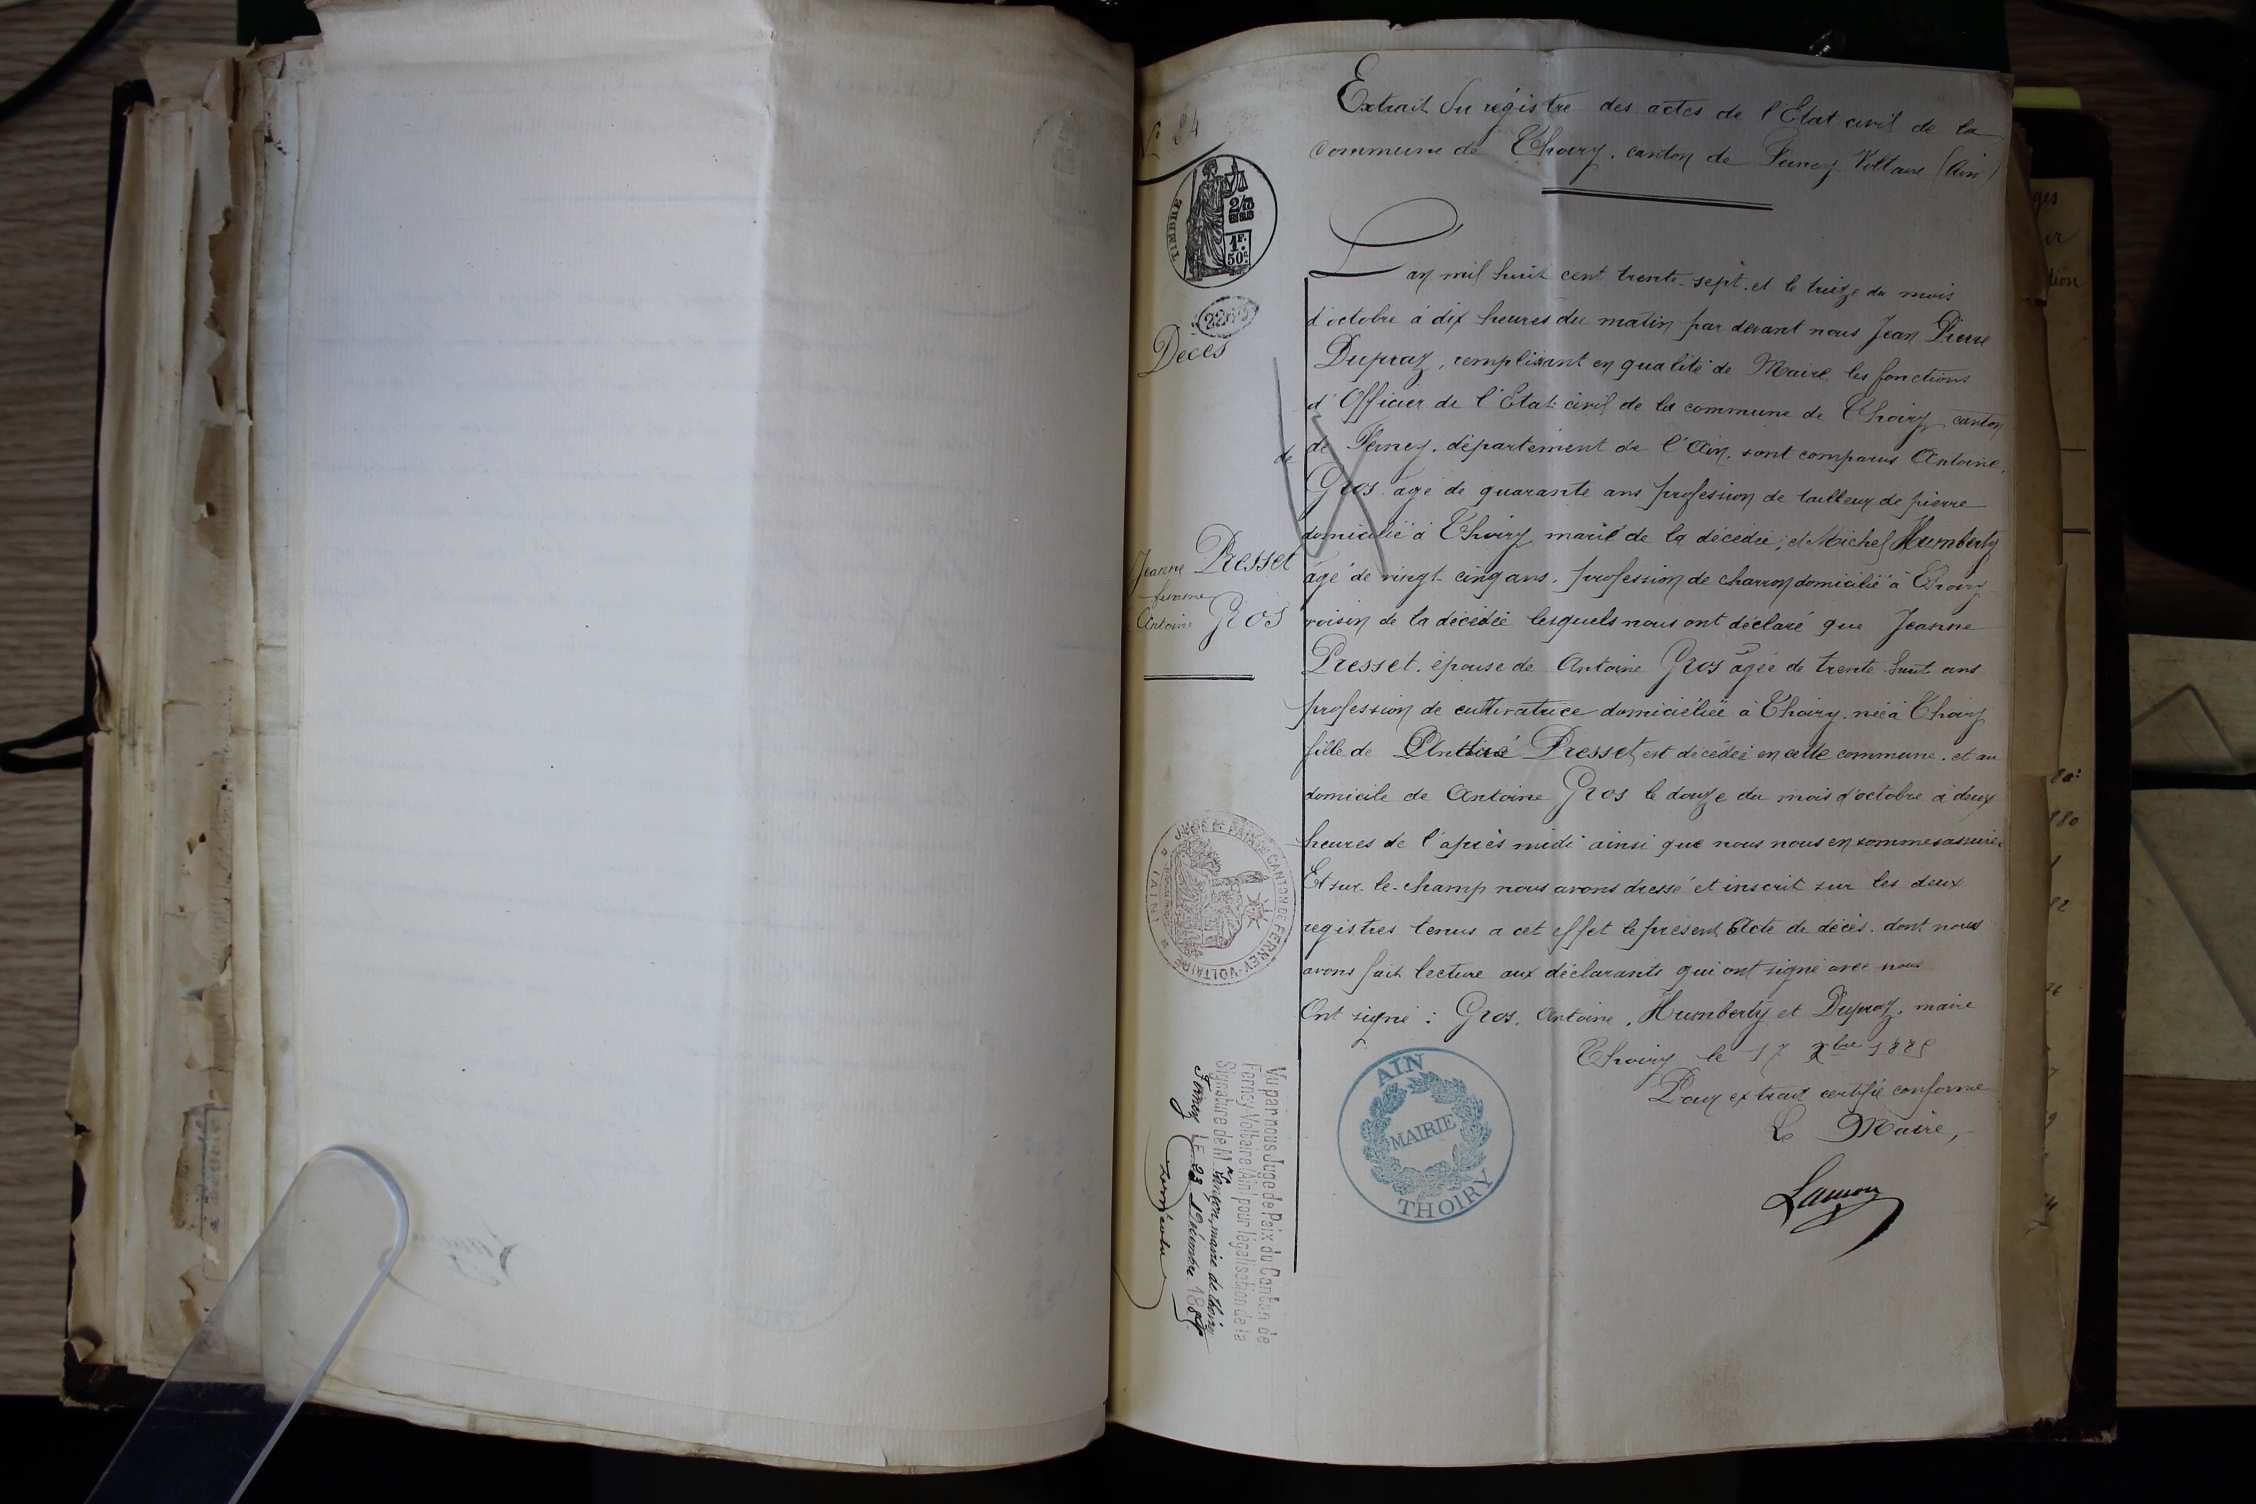 Extrait du régistre des actes de l'Etat civil de la
commune de Thoiry. canton de Ferney Voltaire (Ain)
N° 24
TIMBRE
2/10 EN SUS
1F. 50c.
Décès
de
Jeanne Presset
femme
Antoine Gros
L'an mil huit cent trente-sept. et le treize du mois
d'octobre à dix heures du matin par devant nous Jean Pierre
Dupraz, remplissant en qualité de Maire les fonctions
d'Officier de l'Etat-civil de la commune de Thoiry canton
de Ferney. département de l'Ain. sont comparus Antoine
Gros agé de quarante ans profession de tailleur de pierre
domicilié à Thoiry marié de la décédée, et Michel Humberty
âgé de vingt cinq ans. profession de charron domicilié à Thoiry
voisin de la décédée lesquels nous ont déclaré que Jeanne
Presset. épouse de Antoine Gros agée de trente huit ans
profession de cultivatrice domiciéliée à Thoiry. née à Thoiry
fille de Presset est décédée en cette commune. et au
domicile de Antoine Gros le douze du mois d'octobre à deux
heures de l'après midi ainsi que nous nous en sommes assurés
Et sur-le-champ nous avons dressé et inscrit sur les deux
registres tenus a cet effet le présent Acte de décès. dont nous
avons fait lecture aux déclarants qui ont signé avec nous
Ont signé : Gros, Antoine, Humberty et Dupraz, maire
Thoiry le 17 Xbre
Pour extrait certifié conforme
Le Maire,
JUGE DE PAIX DU CANTON DE FERNEY-VOLTAIRE (AIN)
AIN
MAIRIE
THOIRY
Vu par nous Juge de Paix du Canton de
Ferney-Voltaire (Ain) pour légalisation de la
Signature de M maire de Thoiry
Ferney LE 23 Décembre